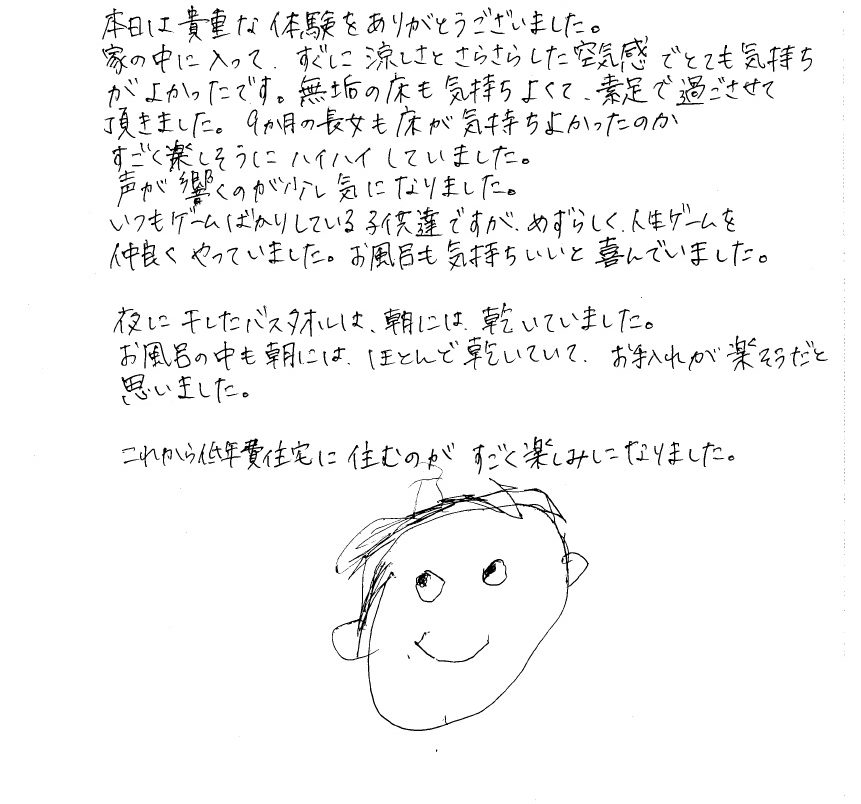 本日は貴重な体験をありがとうございました。
家の中に入って、すぐに涼しさとさらさらした空気感でとても気持ち
がよかったです。無垢の床も気持ちよくて、素足で過ごさせて
頂きました。9か月の長女も床が気持ちよかったのか
すごく楽しそうにハイハイしていました。
声が響くのが少し気になりました。
いつもゲームばかりしている子供達ですが、めずらしく、人生ゲームを
仲良くやっていました。お風呂も気持ちいいと喜んでいました。
夜に干したバスタオルは、朝には、乾いていました。
お風呂の中も朝には、ほとんど乾いていて、お手入れが楽そうだと
思いました。
これから低年費住宅に住むのがすごく楽しみになりました。